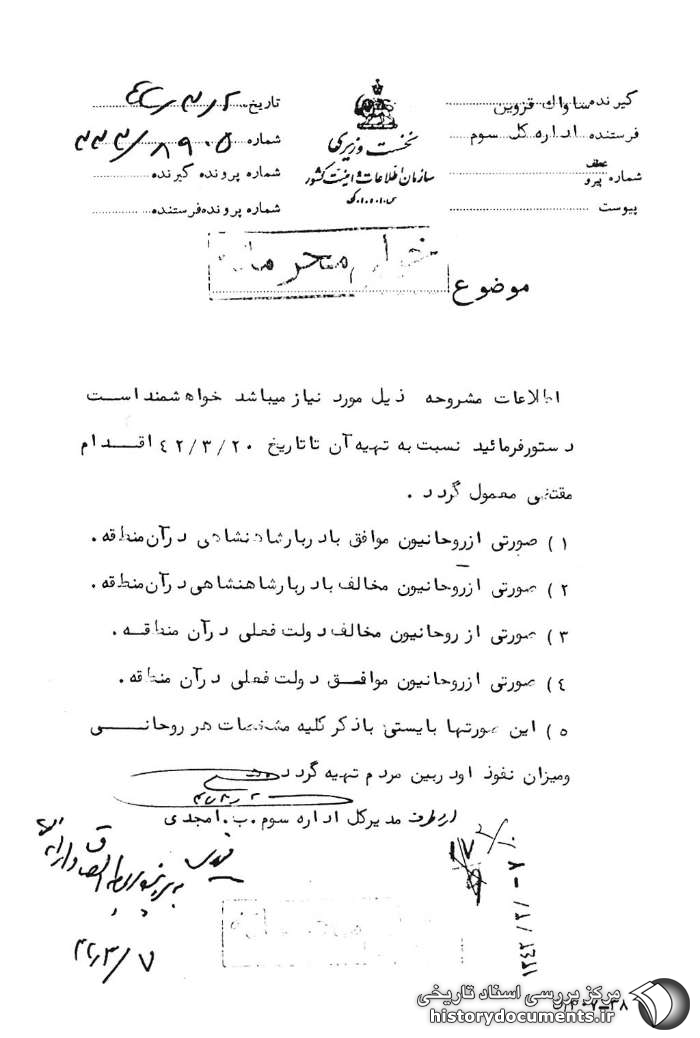 گیرنده ساواك قزوین
فرستنده اداره کل سوم
عطف
شماره پیرو
پیوست
نخست وزیری
سازمان اطلاعات و امنیت کشور
س.ا.و.ا.ك
تاریخ ٤٢/٣/٢
شماره ٣٢٣/٨٩٠٥
شماره پرونده گیرنده
شماره پرونده فرستنده
خیلی محرمانه
موضوع
اطلاعات مشروحه ذیل مورد نیاز میباشد خواهشمند است
دستورفرمائید نسبت به تهیه آن تا تاریخ ٤٢/٣/٢٠ اقدام
مقتضی معمول گردد .
١) صورتی ازروحانیون موافق بادربارشاهنشاهی درآن منطقه .
٢) صورتی ازروحانیون مخالف بادربارشاهنشاهی درآن منطقه .
٣) صورتی از روحانیون مخالف دولت فعلی درآن منطقه .
٤) صورتی ازروحانیون موافق دولت فعلی درآن منطقه .
٥) این صورتها بایستی باذکر کلیه مشخصات هر روحانی
ومیزان نفوذ اودربین مردم تهیه گردد
ازطرف مدیرکل اداره سوم .ب.امجدی
١٣٤٢/٣/-٧
٤٢/٣/٧
مرکز بررسی اسناد تاریخی
historydocuments.ir